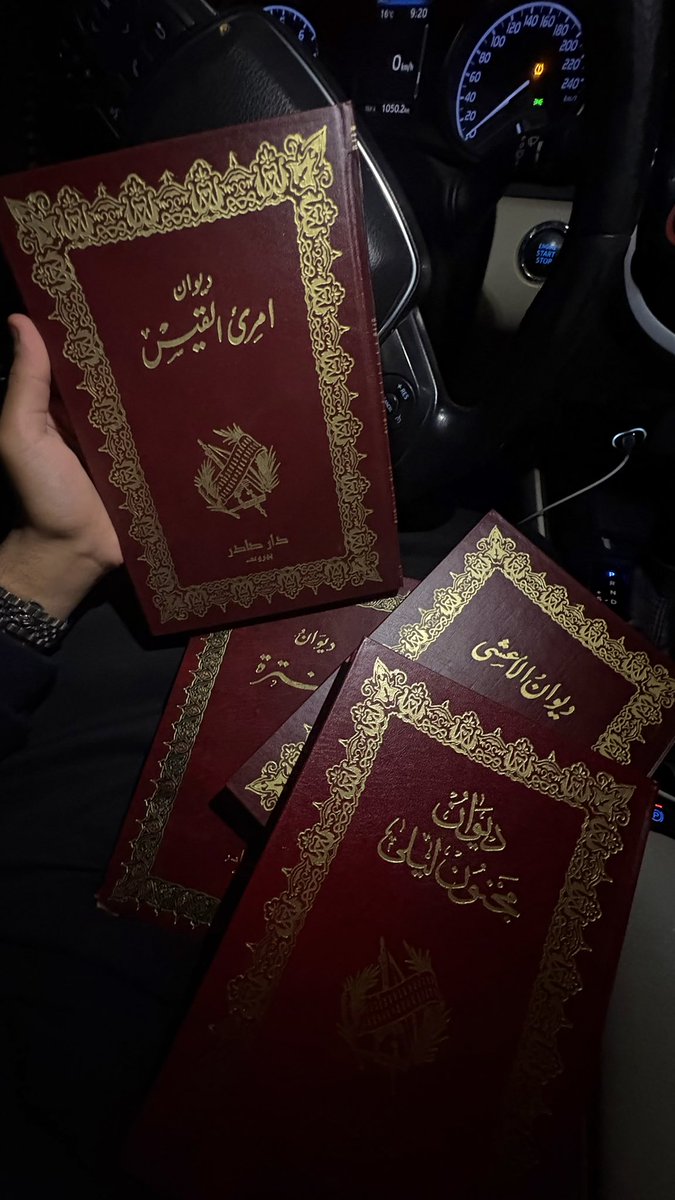 16°C 9:20
6
0 km/h
1050.2 km
0 20 40 60 80 100 120 140 160 180 200 220 240
km/h
ENGINE
START
STOP
+RES
P
R
N
D
ديوان
امرئ القيس
دار صادر
بيروت
ديوان
ديوان الأعشى
ديوان
مجنون ليلى